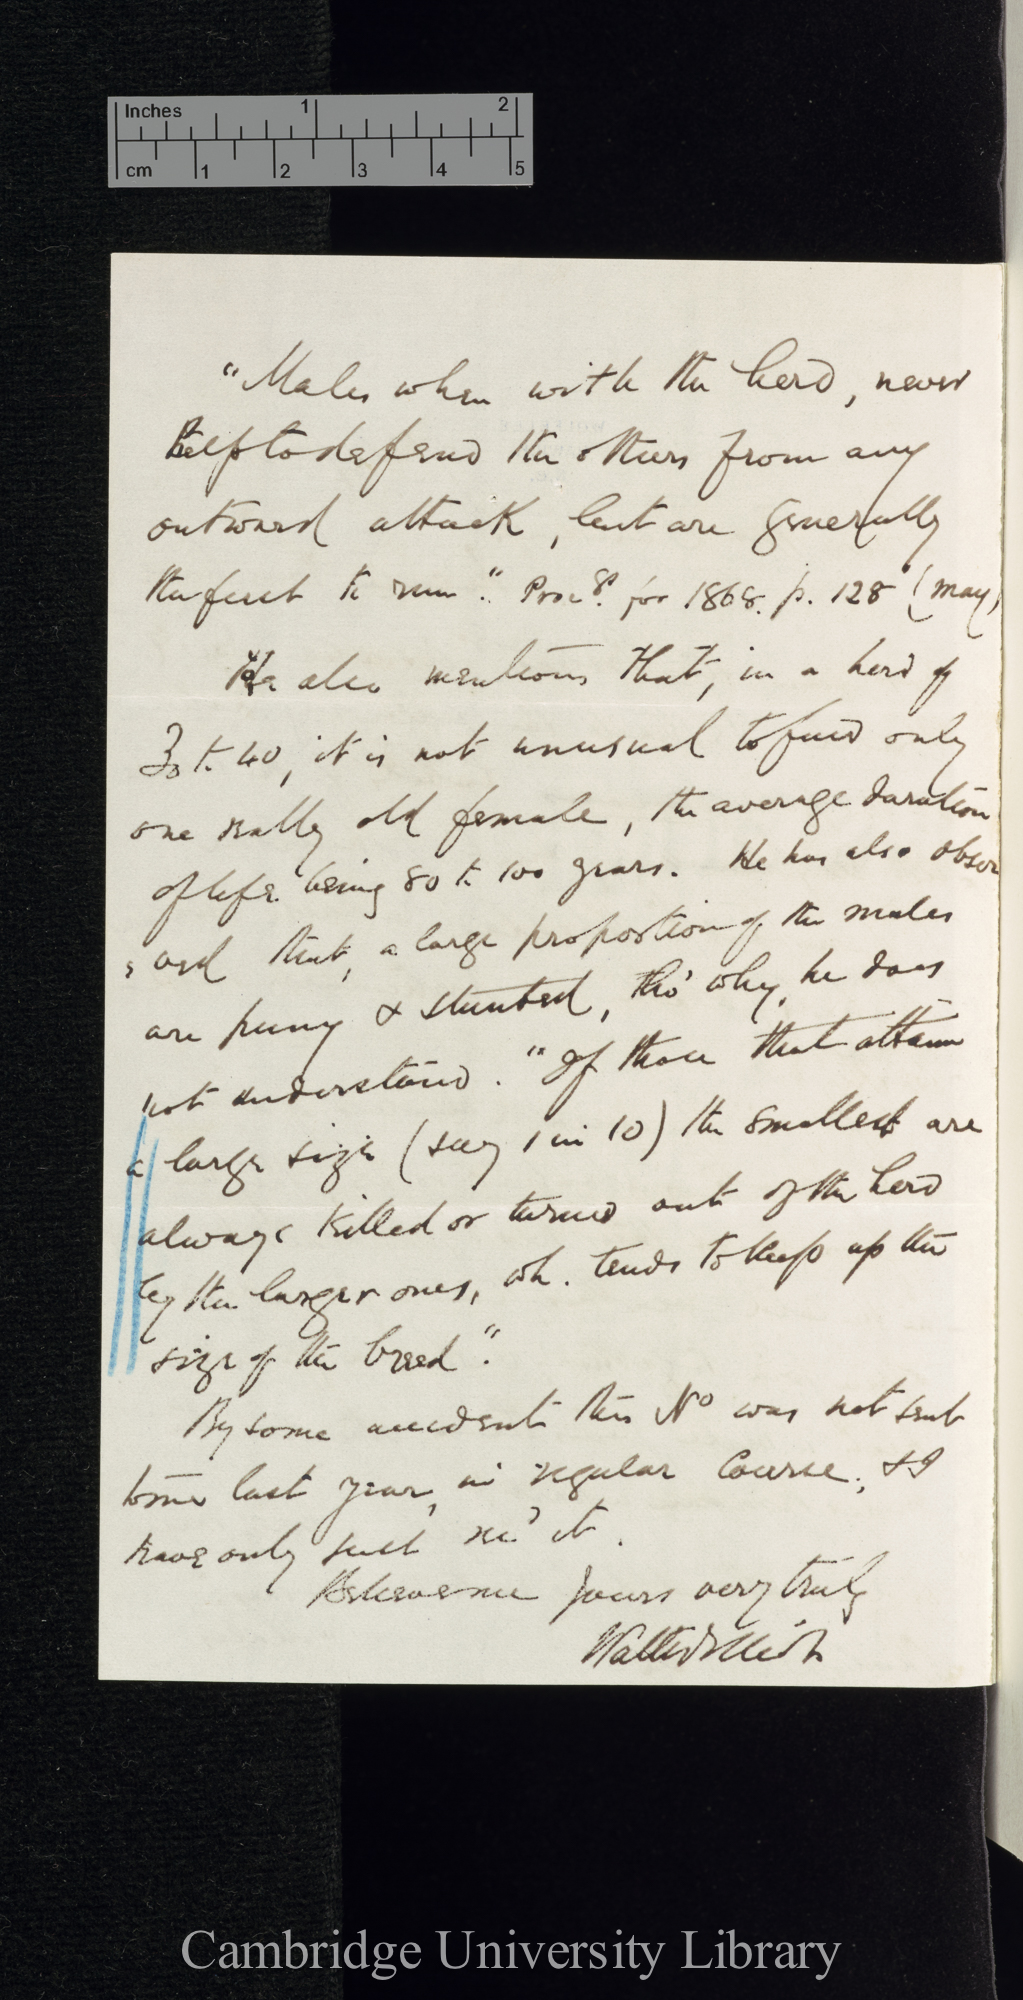 Inches 1 2
cm 1 2 3 4 5
"Males when with the herd, never
help to defend the others from any
outward attack, but are generally
the first to run". Procgs. for 1868. p. 128 (May)
He also mentions that, in a herd of
30 to 40, it is not unusual to find only
one really old female, the average duration
of life being 80 to 100 years. He has also obser
:ved that, a large proportion of the males
are puny & stunted, tho' why, he does
not understand. "Of those that attain
a large size (say 1 in 10) the smallest are
always killed or turned out of the herd
by the larger ones, wh. tends to keep up the
size of the breed".
By some accident this No was not sent
to me last year, in regular course, & I
have only just recd it.
Believe me yours very truly
Walter Elliot
Cambridge University Library